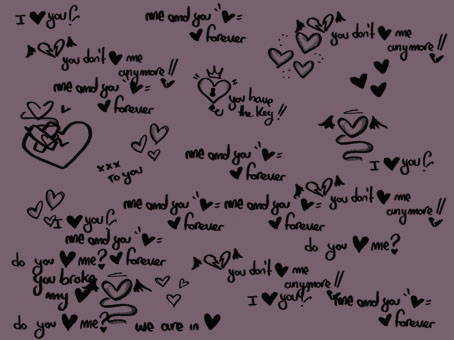 I ♥ you!
me and you ♥=
♥ forever
you don't ♥ me
anymore!!
you don't ♥ me
anymore!!
me and you ♥=
♥ forever
you have
the key!!
me and you ♥=
♥ forever
xxx
To you
I ♥ you!
you don't ♥ me
anymore!!
me and you ♥=
♥ forever
me and you ♥=
♥ forever
I ♥ you!
me and you ♥=
♥ forever
do you ♥ me?
do you ♥ me?
you broke
my ♥
you don't ♥ me
anymore!!
I ♥ you!
me and you ♥=
♥ forever
do you ♥ me?
we are in ♥